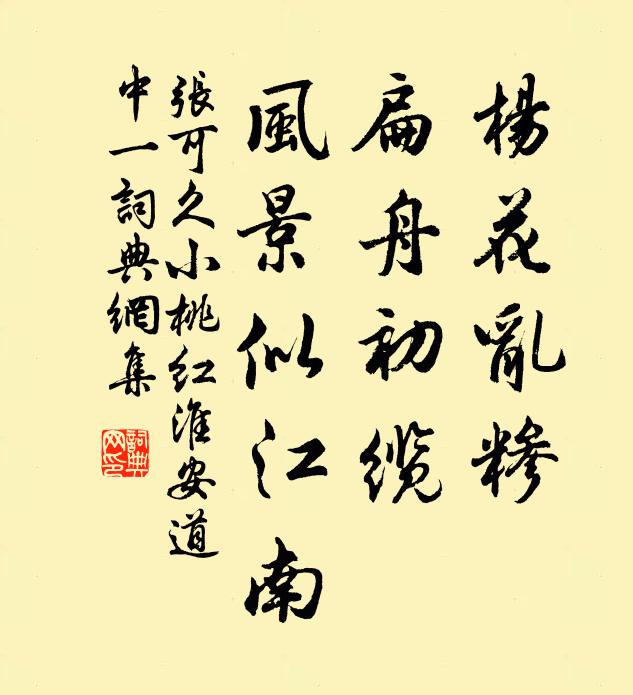 楊花亂糝
扁舟初纜
風景似江南
張可久小桃紅淮安道
中一詞典網集
詞典網印